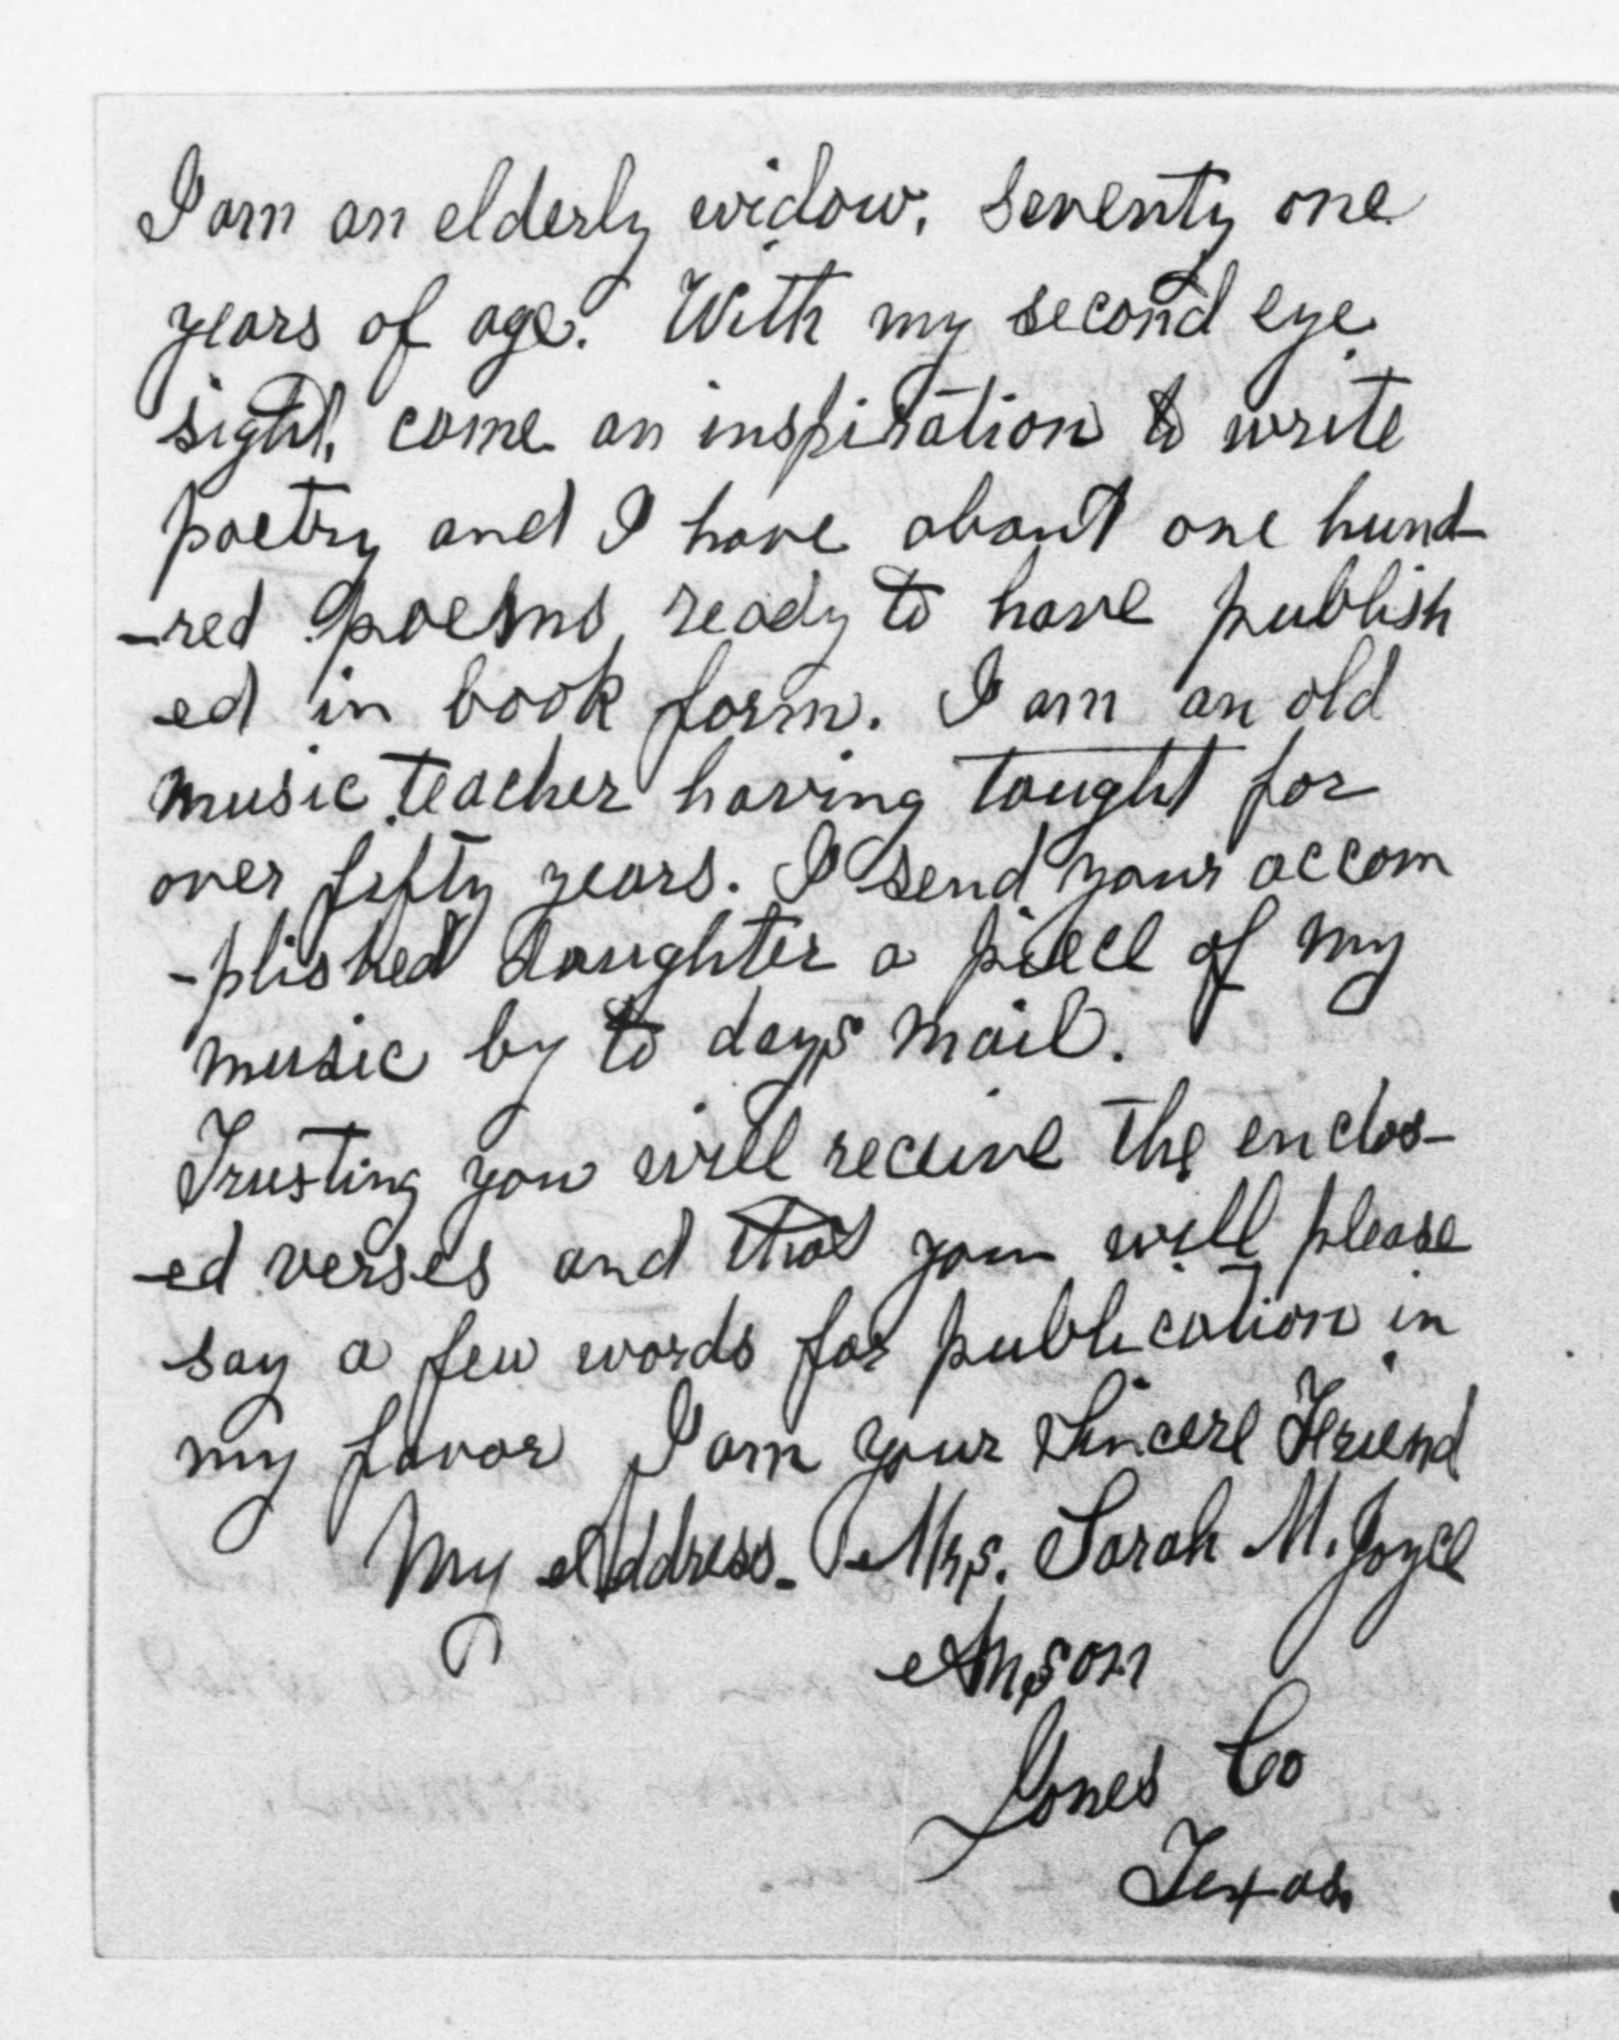 I am an elderly widow, seventy one
years of age. With my second eye
sight, came an inspiration to write
poetry and I have about one hund-
-red poems ready to have publish
ed in book form. I am an old
music teacher having taught for
over fifty years. I send your accom
-plished daughter a piece of my
music by to days mail.
Trusting you will receive the enclos-
-ed verses and that you will please
say a few words for publication in
my favor I am your Sincere Friend
My Address. Mrs. Sarah M. Joyce
Anson
Jones Co
Texas.